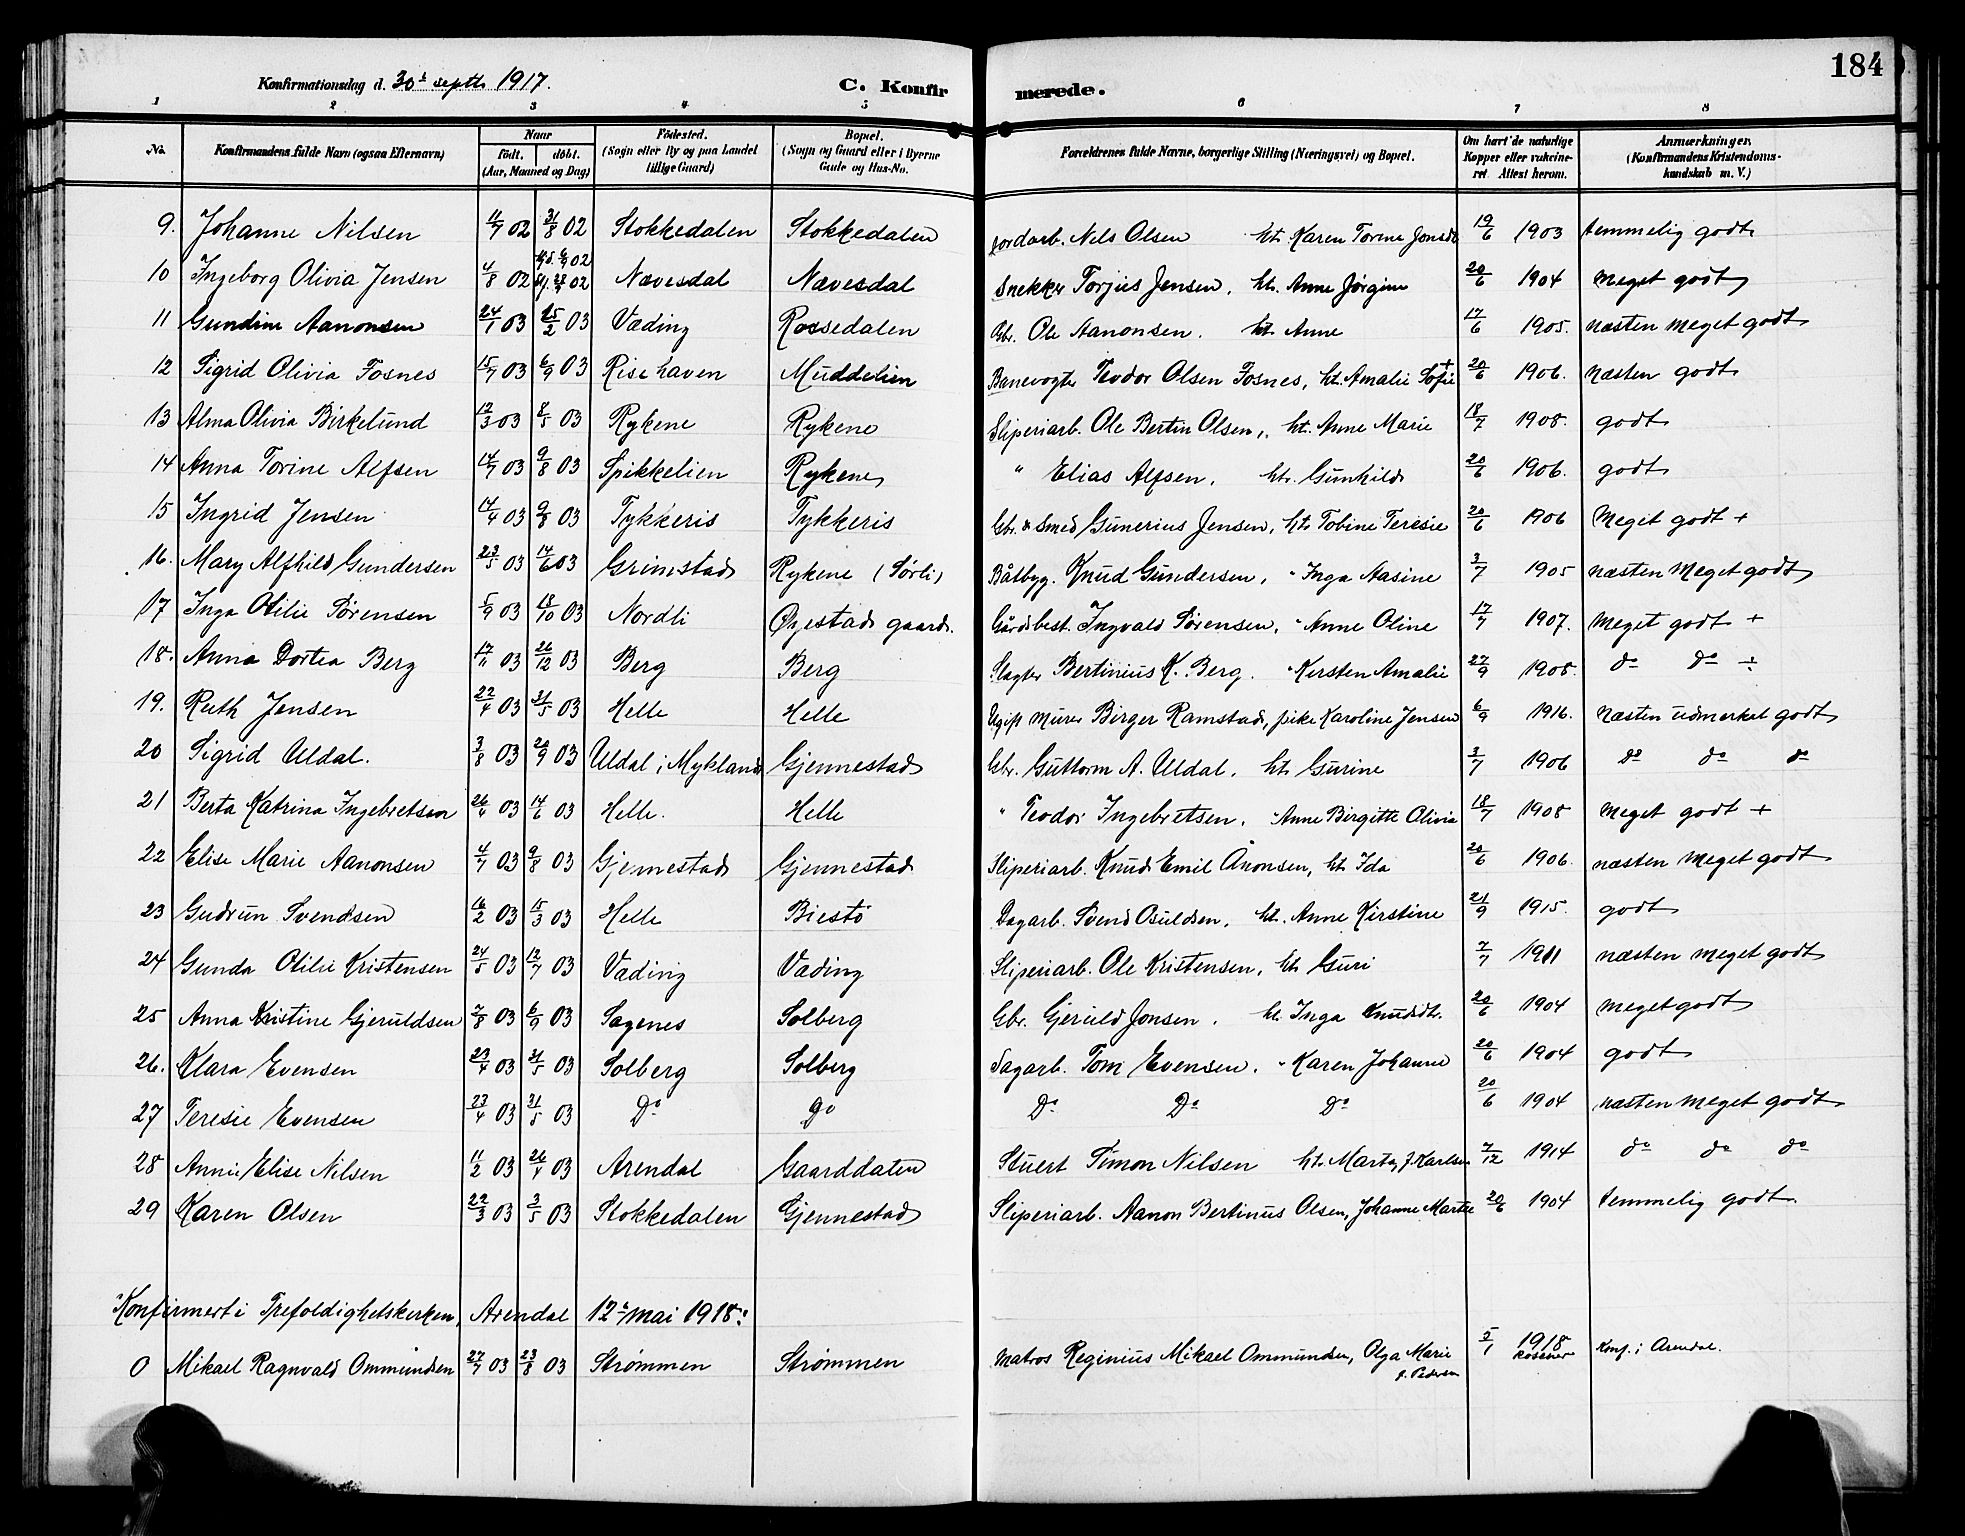 184
Konfirmationsdag d. 30te septb. 1917. C. Konfirmerede.
1 2 3 4 5 6 7 8
No. Konfirmandens fulde Navn (ogsaa Efternavn) Naar født. døbt. (Aar, Maaned og Dag) Fødested. (Sogn eller By og paa Landet tillige Gaard) Bopæl. (Sogn og Gaard eller i Byerne Gade og Hus-No. Forældrenes fulde Navne, borgerlige Stilling (Næringsvei) og Bopæl. Om havt de naturlige Kopper eller vakcineret Attest herom. Anmærkninger. (Konfirmandens Kristendomskundskab m. V.)
9. Johanne Nilsen 11/7 02 31/8 02 Stokkedalen Stokkedalen Jordarb. Nels Olsen ht. Karen Torine Jonsdt 19/6 1903 temmelig godt
10 Ingeborg Olivia Jensen 4/8 02 Nævesdal Nævesdal Snekker Torjus Jensen, ht. Anne Jørgine 20/6 1904 meget godt
11 Gundine Aanonsen 24/1 03 25/2 03 Væding Rossedalen Gbr. Ole Aanonsen. ht. Anne 17/6 1905. næsten meget godt
12 Sigrid Olivia Fosnes 15/7 03 6/9 03 Risehaven Muddelien Banevogter Teodor Olsen Fosnes, ht. Amalie Sofie + 20/6 1906. næsten godt
13 Alma Olivia Birkelund 12/3 03 8/5 03 Rykene Rykene Sliperiarb. Ole Bertin Olsen, ht. Anne Marie 18/7 1908. godt
14 Anna Torine Alfsen 14/7 03 9/8 03 Spikkelien Rykene " Elias Alfsen, ht. Gunhild 20/6 1906. godt
15 Ingrid Jensen 17/4 03 9/8 03 Tykkeris Tykkeris Gbr. & Smed Gunerius Jensen, ht. Tobine Teresie 20/6 1906 Meget godt +
16. Mary Alfhild Gundersen 23/5 03 14/6 03 Grimestad Rykene (Sørli) Båtbyg. Knud Gundersen, " Inga Nasine 3/7 1905 næsten Meget godt
17 Inga Otilie Sørensen 5/9 03 18/10 03 Nordli Øyestad gaard. Gårdsbest. Ingvald Sørensen, " Anne Oline 17/7 1907. meget godt +
18. Anna Dortea Berg 17/11 03 26/12 03 Berg Berg Slagter Bertinius K. Berg. " Kirsten Amalie 27/9 1908. do do ÷
19. Ruth Jensen 22/4 03 31/5 03 Helle Helle Ugift murer Birger Ramstad, pike Karoline Jensen 6/9 1916. næsten udmerket godt
20 Sigrid Uldal. 3/8 03 20/9 03 Uldal i Mykland Gjennestad Gbr. Guttorm A. Uldal. ht Gurine 3/7 1906 do do do
21 Berta Katrina Ingebretsen 26/4 03 14/6 03 Helle. Helle " Teodor Ingebretsen. " Anne Birgitte Olivia 18/7 1908 meget godt +
22 Elise Marie Aanonsen 4/7 03 9/8 03 Gjennestad Gjennestad Sliperiarb. Knud Emil Ånonsen, ht Ida 20/6 1906. næsten meget godt
23 Gudrun Svendsen 16/2 03 15/3 03 Helle Biestø Dagarb. Svend Osuldsen, ht. Anne Kirstine 21/9 1915. godt
24 Gunda Otilie Kristensen 24/5 03 12/7 03 Væding Væding Sliperiarb. Ole Kristensen, ht Guri 7/7 1911 næsten meget godt
25 Anna Kristine Gjeruldsen 2/8 03 6/9 03 Sagenes Solberg Gbr. Gjeruld Jonsen. ht. Inga Knudsdt. 20/6 1904 meget godt
26. Klara Evensen 23/4 03 31/5 03 Solberg Solberg Sagarb. Tom Evensen. " Karen Johanne 20/6 1904 godt
27 Teresie Evensen 23/4 03 31/5 03 Do Do Do Do Do 20/6 1904 næsten meget godt
28 Annie Elise Nilsen 11/2 03 26/4 03 Arendal Gaarddalen Stuert Simon Nilsen ht. Marta, f. Karlsen 7/12 1914 do do do
29 Karen Olsen 22/3 03 3/5 03 Stokkedalen Gjennestad Sliperiarb. Aanon Bertinus Olsen, Johanne Marte 20/6 1904 temmelig godt.
Konfirmert i Trefoldighetskirken, Arendal 12te mai 1918:
0 Mikael Ragnvald Ommundsen 27/7 03 23/8 03 Strømmen Strømmen Matros Reginius Mikael Ommundsen, Olga Marie f. Pedersen 5/1 1918 Konf. i Arendal.